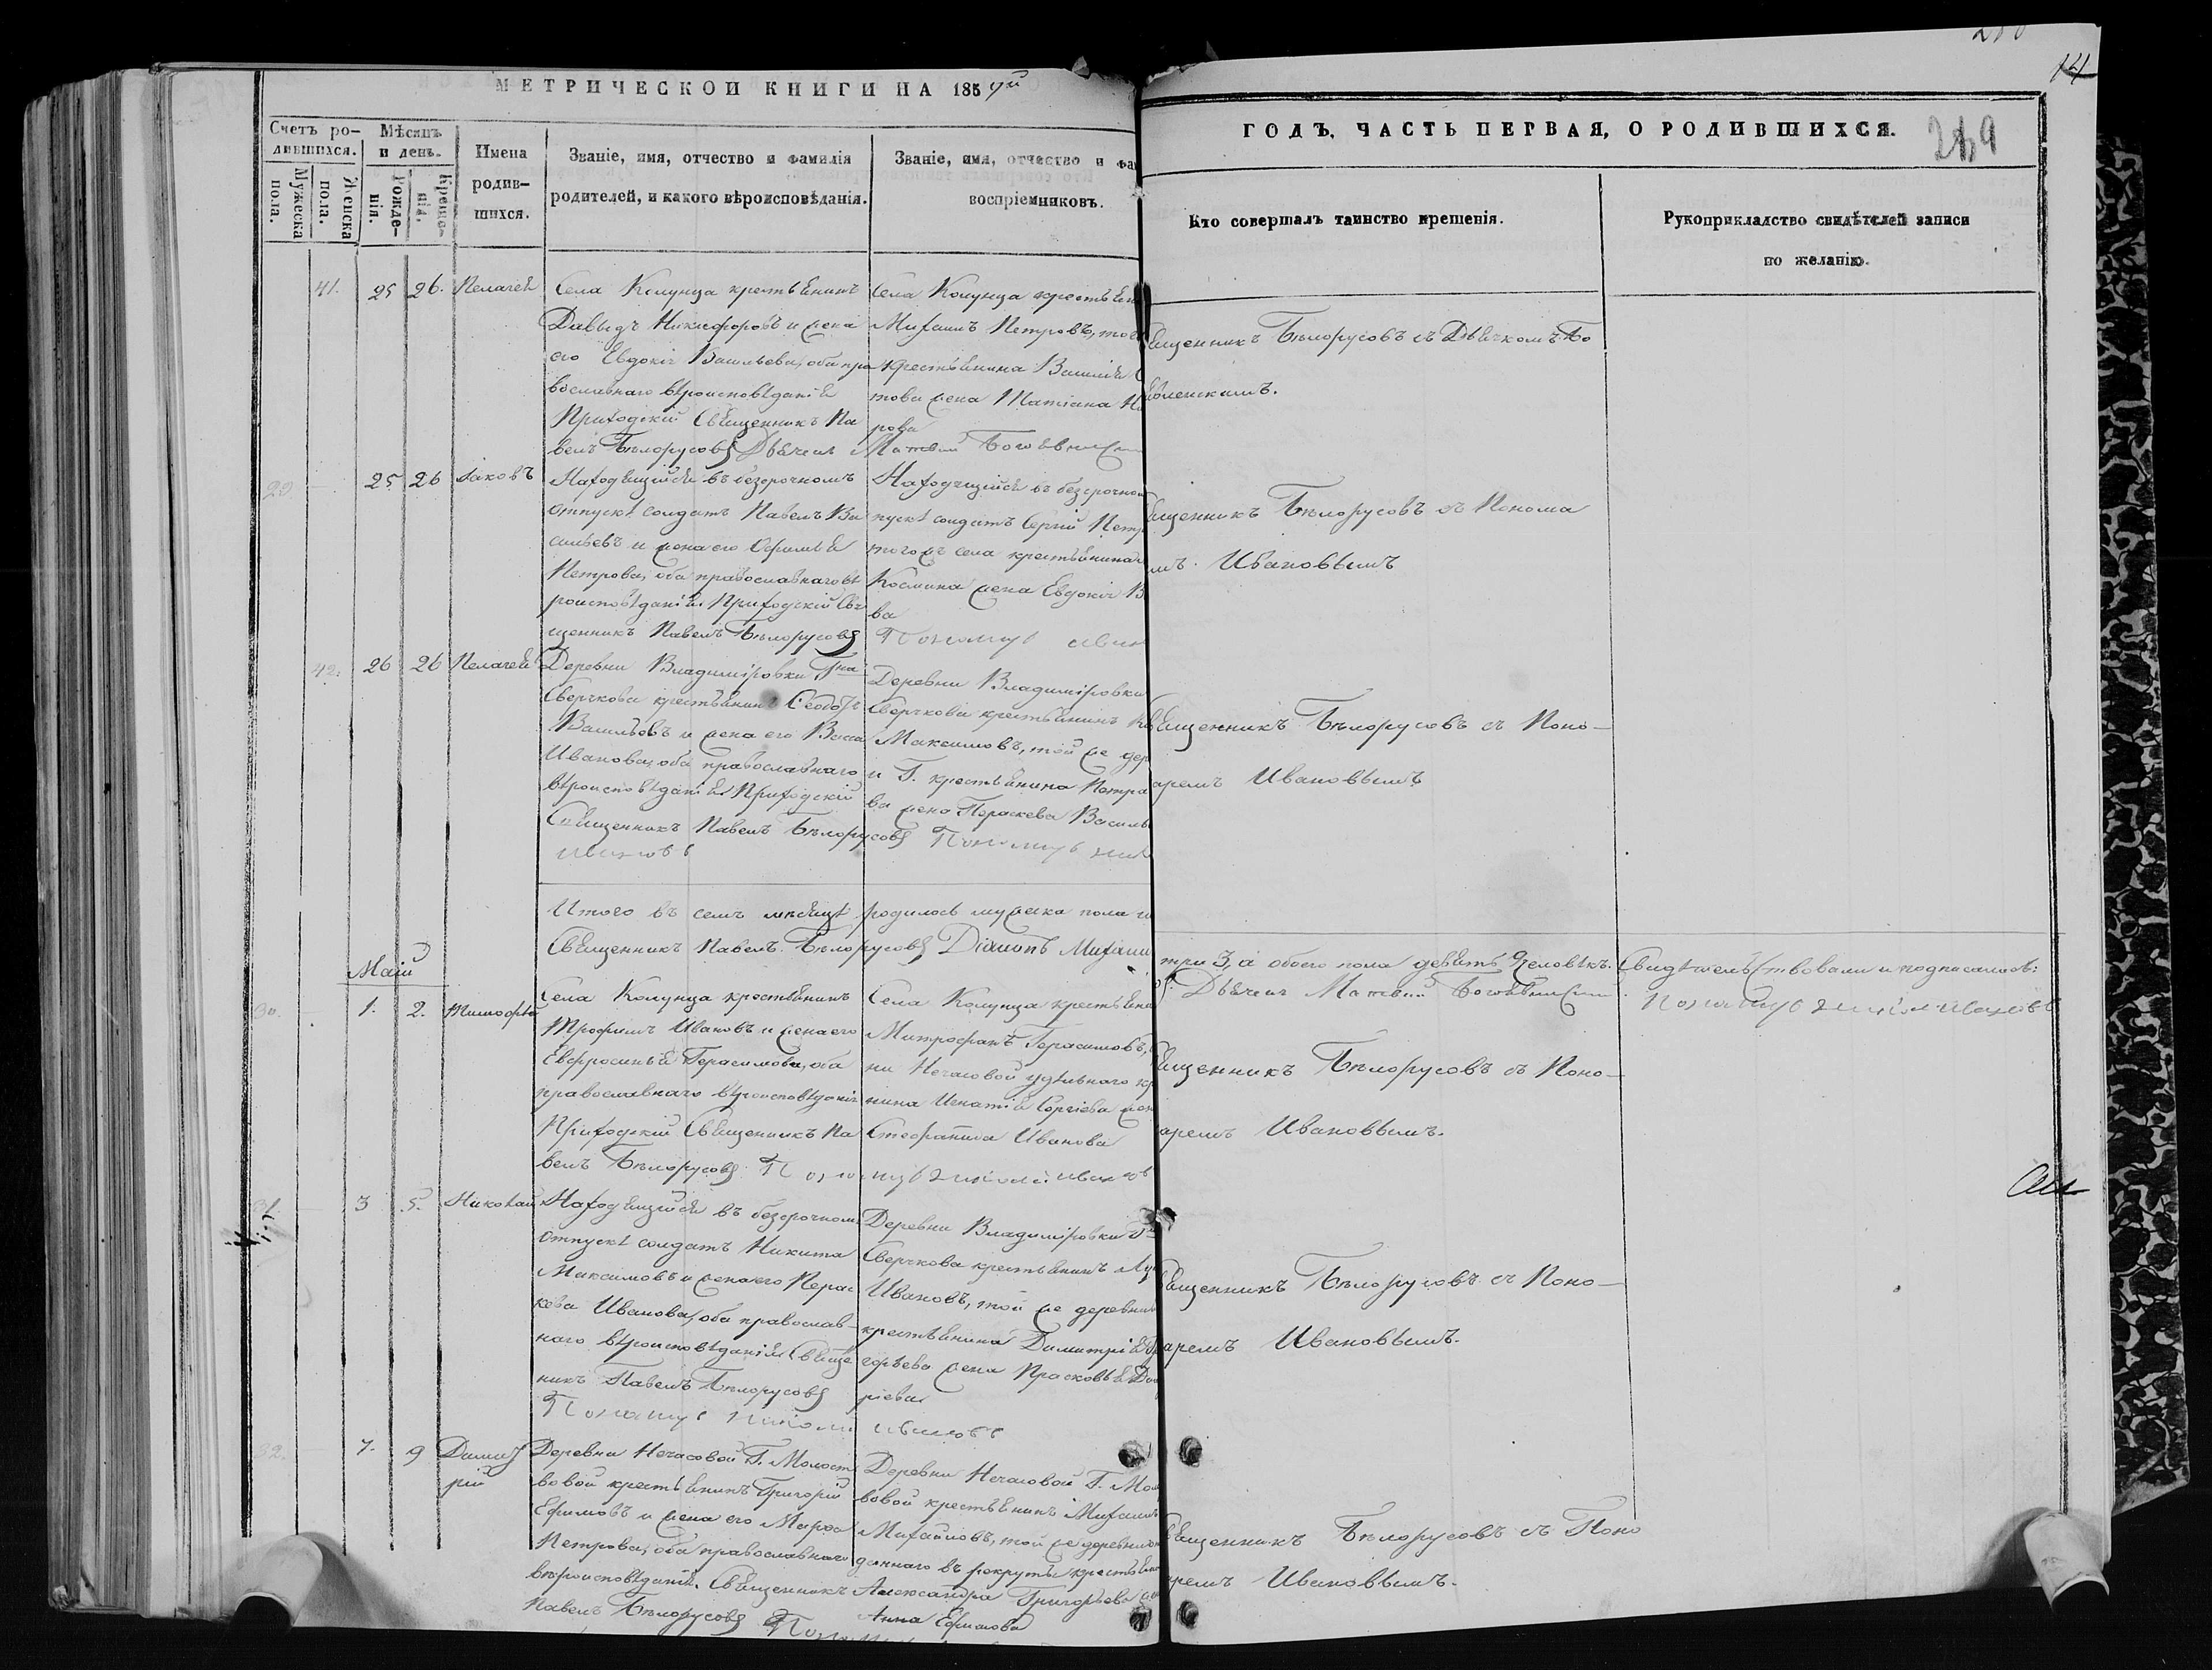 МЕТРИЧЕСКОЙ КНИГИ НА 185
ГОДЪ, ЧАСТЬ ПЕРВАЯ, О РОДИВШИХСЯ.
14
Счетъ ро-
дившихся.
Мужеска
пола.
Женска
пола.
Мѣсяцъ
и день.
Рожде-
нія.
Креще-
нія.
Имена
родив-
шихся.
Званіе, имя, отчество и фамилія
родителей, и какого вѣроисповѣданія.
Званіе, имя, отчество и фа
воспріемниковъ.
Кто совершалъ таинство крещенія.
Рукоприкладство свидѣтелей записи
по желанію.
41. 25 26. Пелагея
Села Колунца крестьянинъ
Давыдъ Никифоровъ и жена
его Евдокія Васильева, оба пра
вославнаго вѣроисповѣданія
Приходскій Священникъ Па
велъ Бѣлорусовъ Дьячекъ
Села Колунца крестьяни
Михаилъ Петровъ, того
крестьянина Василія
това жена Татіана Ни
рова
Матвѣй Богоявленск
ященникъ Бѣлорусовъ съ Дьячкомъ Бо
явленскимъ.
29. 25 26 Іаковъ
Находящійся въ безсрочномъ
отпускѣ солдатъ Павелъ Ва
сильевъ и жена его Ефимія
Петрова, оба православнаго вѣ
роисповѣданія. Приходскій Свя
щенникъ Павелъ Бѣлорусовъ
Находящійся въ безсрочном
пускѣ солдатъ Сергій Петр
того жъ села крестьянина
Космина жена Евдокія В
ва
Пономарь
ященникъ Бѣлорусовъ съ Понома
мъ Ивановымъ
42. 26 26 Пелагея
Деревни Владиміровки Гна
Сверчкова крестьянинъ Ѳеодоръ
Васильевъ и жена его Васса
Иванова, оба православнаго
вѣроисповѣданія Приходскій
Священникъ Павелъ Бѣлорусовъ Пономарь
Ивановъ
Деревни Владиміровки
Сверчкова крестьянинъ
Максимовъ, той же дер
и Г. крестьянина Петра
ва жена Параскева Василь
ященникъ Бѣлорусовъ съ Поно-
аремъ Ивановымъ
Итого въ семъ мѣсяцѣ родилось мужеска пола
три 3, а обоего пола девять 9 человѣкъ. Свидѣтельствовали и подписались:
Священникъ Павелъ Бѣлорусовъ Діаконъ Михаил
Дьячекъ Матвѣй Богоявленск
Пономарь Николай Ивановъ
Маій
30. 1. 2. Тимофей
Села Колунца крестьянинъ
Трофимъ Ивановъ и жена его
Евфросинья Герасимова, оба
православнаго вѣроисповѣданія
Приходскій Священникъ Па
велъ Бѣлорусовъ. Пономарь Николай Ивановъ
Села Колунца крестьяни
Митрофанъ Герасимовъ,
ни Нечасовой удѣльнаго кр
нина Игнатія Сергіева жен
Стефанида Иванова
ященникъ Бѣлорусовъ съ Поно-
аремъ Ивановымъ.
31. 3 5. Николай
Находящійся въ безсрочномъ
отпускѣ солдатъ Никита
Максимовъ и жена его Парас
кева Иванова, оба православ-
наго вѣроисповѣданія. Священ
никъ Павелъ Бѣлорусовъ
Пономарь Николай Ивановъ
Деревни Владиміровки Гна
Сверчкова крестьянинъ
Ивановъ, той же деревни
крестьянина Димитрія
горьева жена Прасковья
ріева
ященникъ Бѣлорусовъ съ Поно-
аремъ Ивановымъ.
32. 7. 9 Димит
рій
Деревни Нечасовой Г. Молост
вовой крестьянинъ Григорій
Ефимовъ и жена его Марѳа
Петрова, оба православнаго
вѣроисповѣданія. Священникъ
Павелъ Бѣлорусовъ
Деревни Нечасовой Г. Мол
вовой крестьянинъ Михаилъ
Михайловъ, той же деревни
даннаго въ рекруты крестьян
Александра Григорьева
Анна Ефимова
ященникъ Бѣлорусовъ съ Поно
аремъ Ивановымъ.